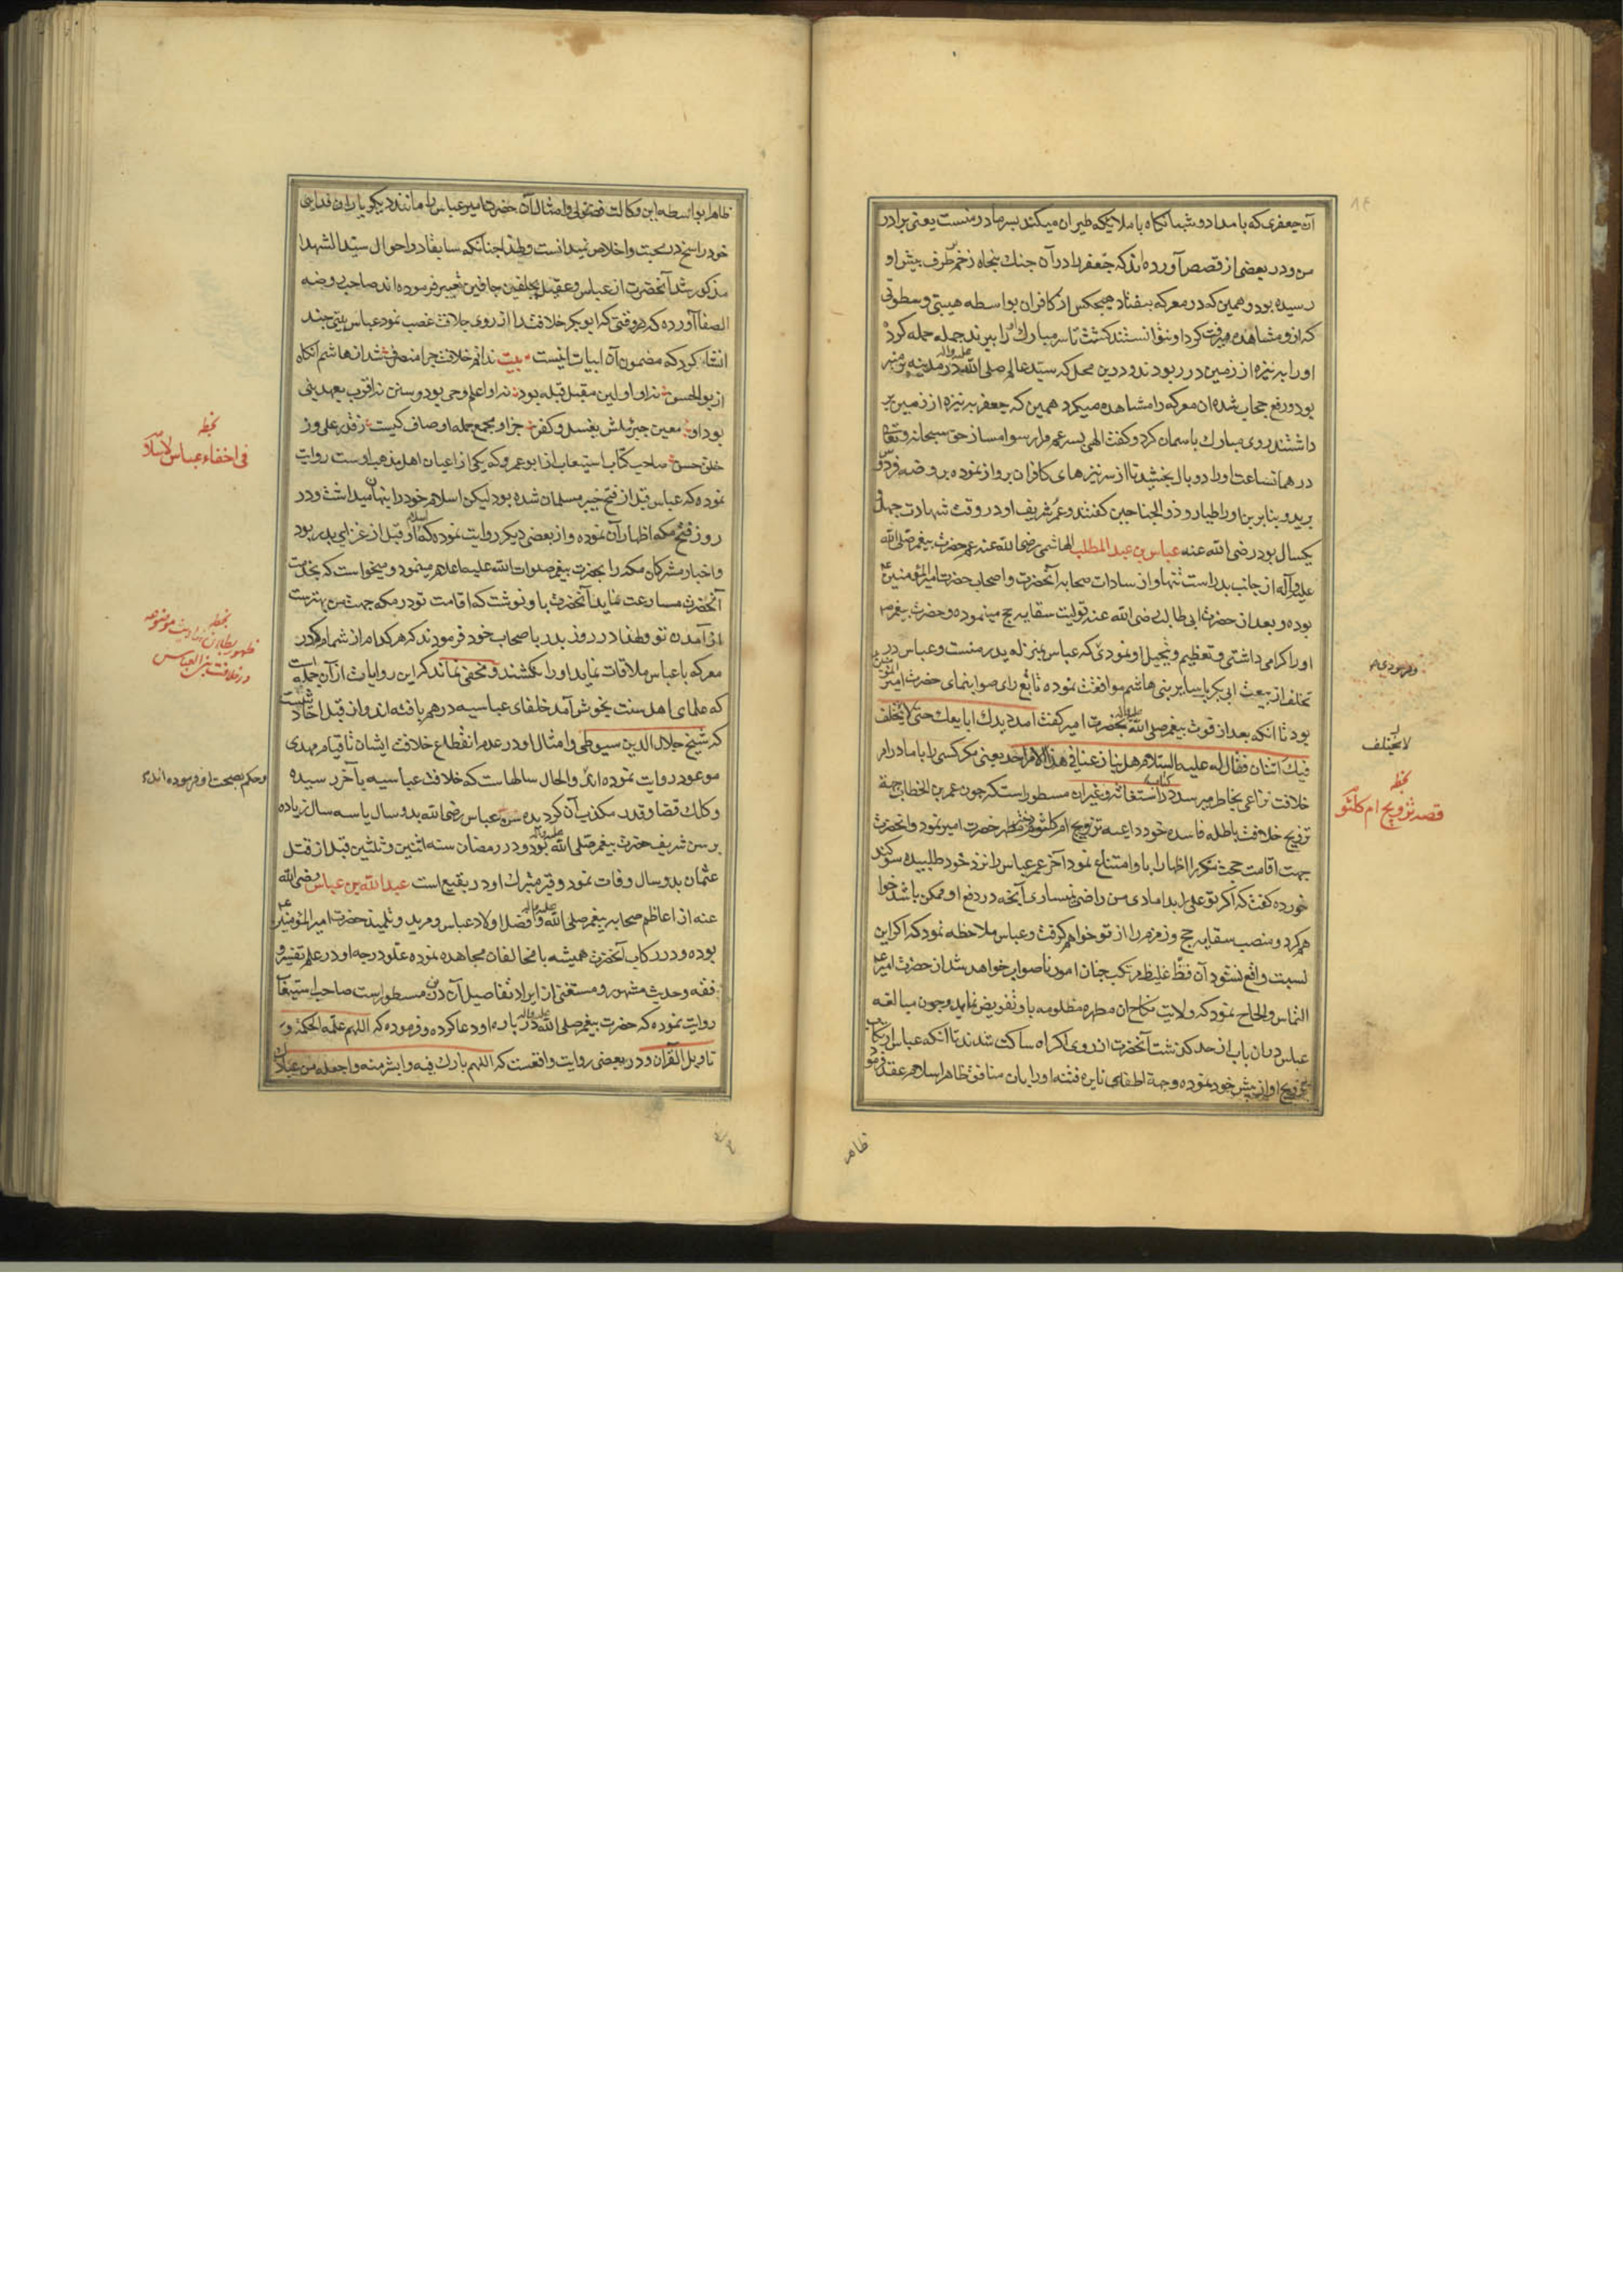 آن جعفری که بامداد و شبانگاه با ملایکه طیران میکند پسر مادر منست یعنی برادر
من و در بعضی از قصص آورده‌اند که جعفر را در آن جنک پنجاه زخم از طرف پیش او
رسیده بود و همین که در معرکه بیفتاد هیچکس از کافران بواسطه هیبتی و سطوتی
که از و مشاهده میرفت کرد او نتوانستند کشت تا سر مبارک او را ببرند جمله حمله کرده
او را بر نیزه از زمین در ربودند و درین محل که سید عالم صلی الله علیه واله در مدینه بر منبر
بود و رفع حجاب شده آن معرکه را مشاهده میکرد همین که جعفر بر نیزه از زمین بر
داشتند روی مبارک باسمان کرد و کفت الهی پسر عم مرا رسوا مساز حق سبحانه وتعالی
در همانساعت او را دو بال بخشید تا از سر نیزهای کافران پرواز نموده بروضه فردوس
برید و بنابرین او را طیار و ذو الجناحین کفتند و عمر شریف او در وقت شهادت چهل و
یکسال بود رضی الله عنه عباس بن عبد المطلب الهاشمی رضی الله عنه عم حضرت پیغمبر صلی الله
علیه وآله از جانب پدر است تنها و از سادات صحابه آنحضرت و اصحاب حضرت امیر المؤمنین
بوده و بعد از حضرت ابی طالب رضی الله عنه تولیت سقایه حج مینموده و حضرت پیغمبر
او را کرامی داشتی و تعظیم و تبجیل او نمودی که عباس بمنزله پدر منست و عباس در
تخلف از بیعت ابی بکر با سایر بنی هاشم موافقت نموده تابع رای صوابنمای حضرت امیر المؤمنین
بود تا آنکه بعد از فوت پیغمبر صلی الله علیه واله بحضرت امیر کفت امدد یدک ابایعک حتی لا یتخلف
فیک اثنان فقال له علیه السلام هل ینازعنا فی هذا الامر احد یعنی مکر کسی را با ما در امر
خلافت نزاعی بخاطر میرسد و در کتاب استغاثه و غیر ان مسطور است که چون عمر بن الخطاب جهة
ترویج خلافت باطله فاسده خود داعیه تزویج ام کلثوم دختر مطهر حضرت امیر نمود و انحضرت
جهت اقامت حجت مکرر اظهار ابا و امتناع نمود آخر عمر عباس را نزد خود طلبیده سوکند
خورده کفت که اکر تو علی را بدامادی من راضی نمیسازی آنچه در دفع او ممکن باشد خواهم
هم کرد و منصب سقایه حج و زمزم را از تو خواهم کرفت و عباس ملاحظه نمود که اکر این
نسبت واقع نشود آن فظ غلیظ مرتکب چنان امور ناصواب خواهد شد از حضرت امیر
التماس و الحاح نمود که ولایت نکاح ان مطهره مظلومه باو تفویض نماید و چون مبالغه
عباس در ان باب از حد کذشت آنحضرت از روی اکراه ساکت شدند تا آنکه عباس ارتکاب
تزویج او از پیش خود نموده و جهة اطفای نایره فتنه او را بان منافق ظاهر اسلام عقد فرمود
ظاهر
لا یختلف
بخط
قصه تزویج ام کلثوم
ظاهرا بواسطه این وکالت فضولی و امثال آن حضرت امیر عباس را مانند دیکر یاران فدایی
خود راسخ در محبت و اخلاص نمیدانست و لهذا چنانکه سابقا در احوال سید الشهدا
مذکور شد آنحضرت از عباس و عقیل بجلفین جافین تعبیر فرموده‌اند صاحب روضه
الصفا آورده که در وقتی که ابو بکر خلافت را از روی جلافت غصب نمود عباس بیتی چند
انشا کرد که مضمون آن ابیات اینست بیت ندانم خلافت چرا منصرف شد از هاشم انکاه
از بو الحسن نه او اولین مقبل قبله بود نه او اعلم وحی بود و سنن نه اقرب بعهد نبی
بود او معین جبرئیلش بغسل و کفن جز او مجمع جمله اوصاف کیست ز قدر علی و ز
خلق حسن صاحب کتاب استیعاب از ابو عمرو که یکی از اعیان اهل مذهب اوست روایت
نموده که عباس قبل از فتح خیبر مسلمان شده بود لیکن اسلام خود را پنهان میداشت و در
روز فتح مکه اظهار آن نموده و از بعضی دیکر روایت نموده که اسلام او قبل از غزای بدر بود
و اخبار مشرکان مکه را بحضرت پیغمبر صلوات الله علیه اعلام مینمود و میخواست که بخدمت
آنحضرت مسارعت نماید آنحضرت باو نوشت که اقامت تو در مکه جهت من بهتر است
از آمدن تو و لهذا در روز بدر باصحاب خود فرمودند که هر کدام از شما که در
معرکه با عباس ملاقات نماید او را نکشند و مخفی نماند که این روایات از آن جمله است
که علمای اهل سنت بخوش آمد خلفای عباسیه در هم بافته‌اند و از قبیل احادیثیست
که شیخ جلال الدین سیوطی و امثال او در عدم انقطاع خلافت ایشان تا قیام مهدی
موعود روایت نموده‌اند و الحال سالهاست که خلافت عباسیه بآخر رسیده
و کلک قضا و قدر مکذب آن کردیده سن عباس رضی الله بدو سال یا سه سال زیاده
بر سن شریف حضرت پیغمبر صلی الله علیه واله بود و در رمضان سنه اثنین و ثلثین قبل از قتل
عثمان بدو سال وفات نمود و قبر متبرک او در بقیع است عبد الله بن عباس رضی الله
عنه از اعاظم صحابه پیغمبر صلی الله علیه واله و افضل اولاد عباس و مرید و تلمیذ حضرت امیر المؤمنین
بوده و در رکاب آنحضرت همیشه با مخالفان مجاهده نموده علو درجه او در علم تفسیر و
فقه و حدیث مشهور و مستغنی از ایراد تفاصیل آن در مسطور است صاحب استیعاب
روایت نموده که حضرت پیغمبر صلی الله علیه واله در باره او دعا کرده و فرموده که اللهم علمه الحکمة و
تاویل القرآن و در بعضی روایت واقعست که اللهم بارک فیه و انشر منه و اجعله من عبادک
بخط
فی اخفاء عباس اسلامه
بخط
ظهور بطلان احادیث موضوعه
در خلافت بنی العباس
و حکم بصحت او فرموده‌اند